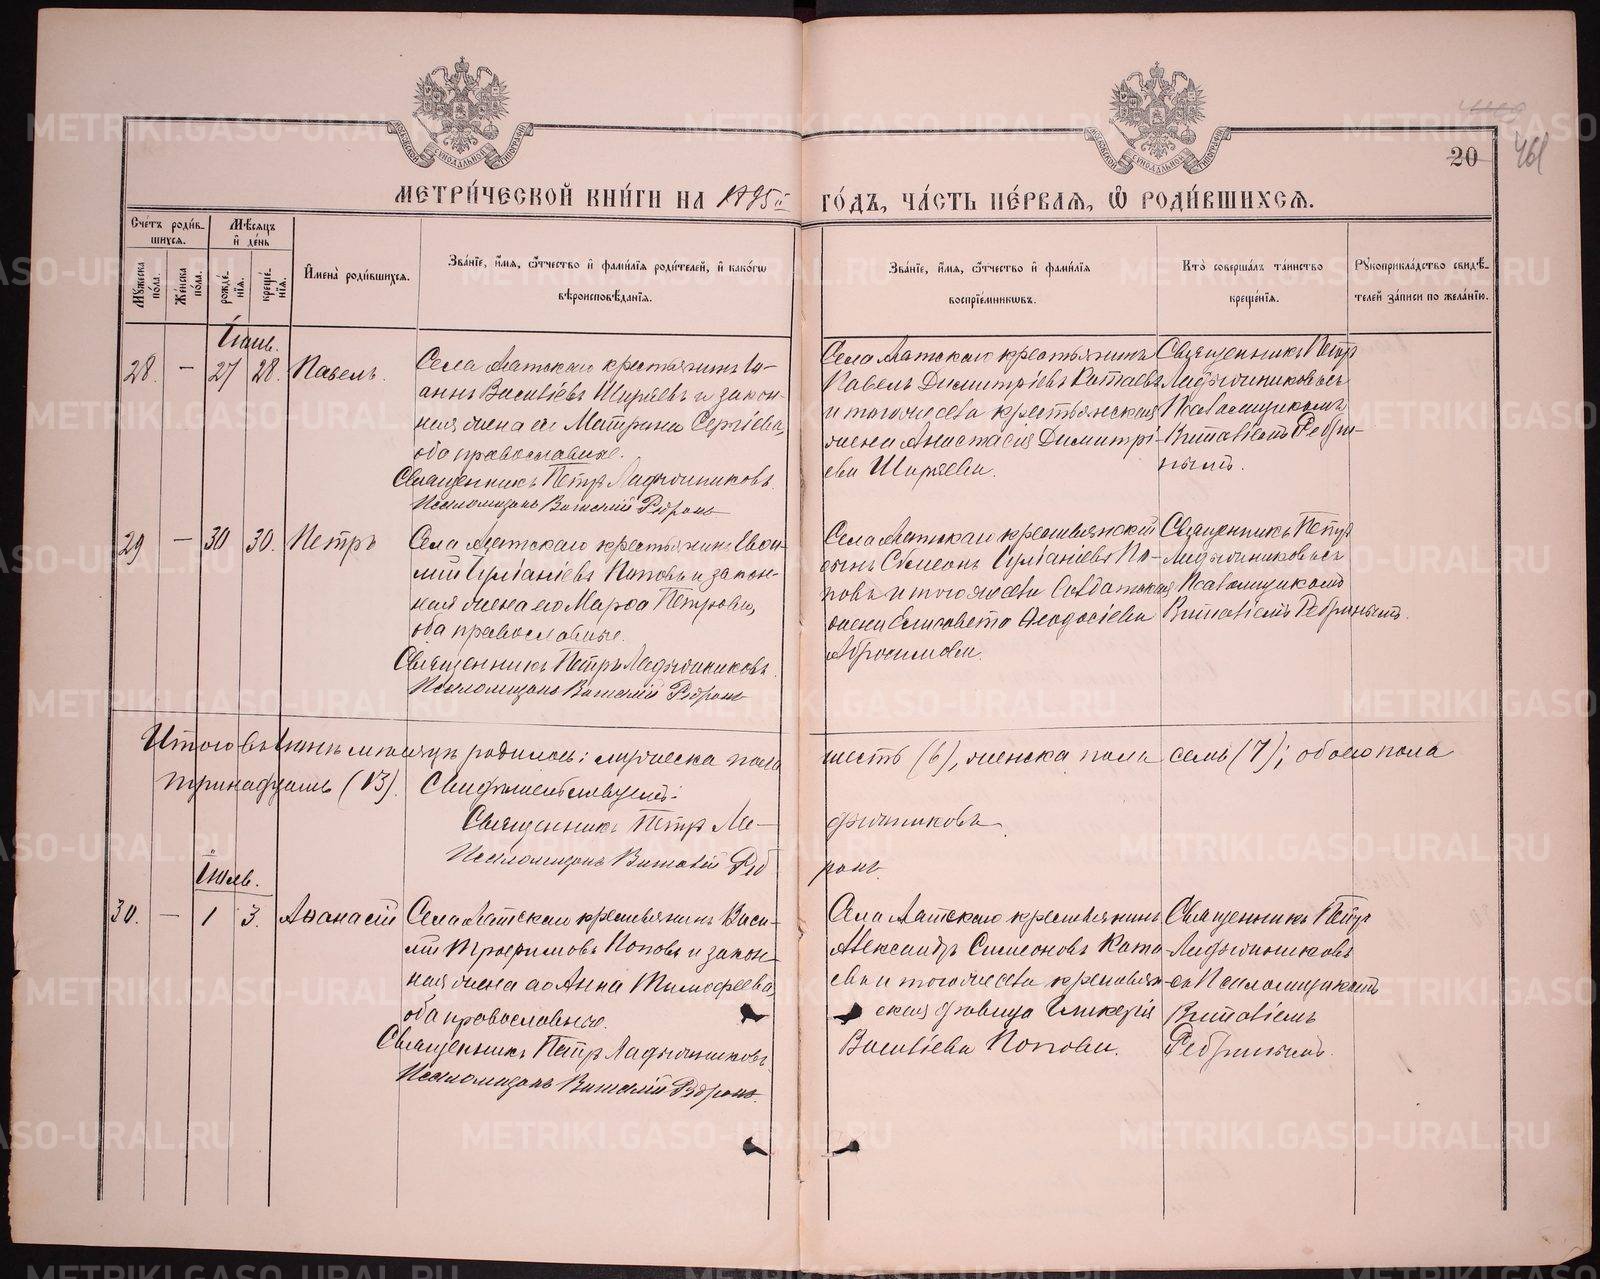 МЕТРИ́ЧЕСКОЙ КНИ́ГИ НА 1895й ГО́ДЪ, ЧА́СТЬ ПЕ́РВАЯ, Ѡ РОДИ́ВШИХСЯ.
20
461
Сче́тъ роди́в-
шихся.
Мѣ́сяцъ
и҆ де́нь
Мꙋжеска
пола.
Же́нска
пола.
рожде́-
нїя.
креще́-
нїя.
И҆мена̀ роди́вшихся.
Зва́нїе, и҆́мя, ѻ҆́тчество и҆ фами́лїя роди́телей, и҆ како́гѡ
вѣроисповѣ́данїя.
Зва́нїе, и҆́мя, ѻ҆́тчество и҆ фами́лїя
воспрїе́мникѡвъ.
Кто̀ соверша́лъ та́инство
креще́нїя.
Рꙋкоприкла́дство свидѣ́-
телей за́писи по жела́нїю.
Іюнь.
28. — 27 28. Павелъ.
Села крестьянинъ Іо-
аннъ Василіевъ Ширяевъ и закон-
ная жена его Матрона Сергіева,
оба православные.
Священникъ Петръ Ладыжниковъ.
Псаломщикъ Виталій Ребринъ
Села крестьянинъ
Павелъ Димитріевъ Катаевъ
и того же села крестьянская
жена Анастасія Димитрі-
ева Ширяева.
Священникъ Петръ
Ладыжниковъ съ
Псаломщикомъ
Виталіемъ Ребри-
нымъ.
29 — 30 30. Петръ
Села крестьянинъ
Іуліаніевъ Поповъ и закон-
ная жена его Марѳа Петрова,
оба православные.
Священникъ Петръ Ладыжниковъ.
Псаломщикъ Виталій Ребринъ
Села крестьянскій
сынъ Симеонъ Іуліаніевъ По-
повъ и того же села Солдатская
жена Елисавета Ѳеодосіева
Абросимова.
Священникъ Петръ
Ладыжниковъ съ
Псаломщикомъ
Виталіемъ Ребринымъ.
Итого въ Іюнѣ мѣсяцѣ родилось: мужеска пола шесть (6), женска пола семь (7); обоего пола
тринадцать (13). Свидѣтельствуемъ:
Священникъ Петръ Ладыжниковъ
Псаломщикъ Виталій Ребринъ.
Іюль.
30. — 1 3. Аѳанасій
Села крестьянинъ Васи-
лій Трофимовъ Поповъ и закон-
ная жена его Анна Тимофеева,
оба православные.
Священникъ Петръ Ладыжниковъ.
Псаломщикъ Виталій Ребринъ.
Села крестьянинъ
Александръ Симеоновъ Ката-
евъ и того же села крестьян-
ская дѣвица Гликерія
Василіева Попова.
Священникъ Петръ
Ладыжниковъ
съ Псаломщикомъ
Виталіемъ
Ребринымъ.
METRIKI.GASO-URAL.RU